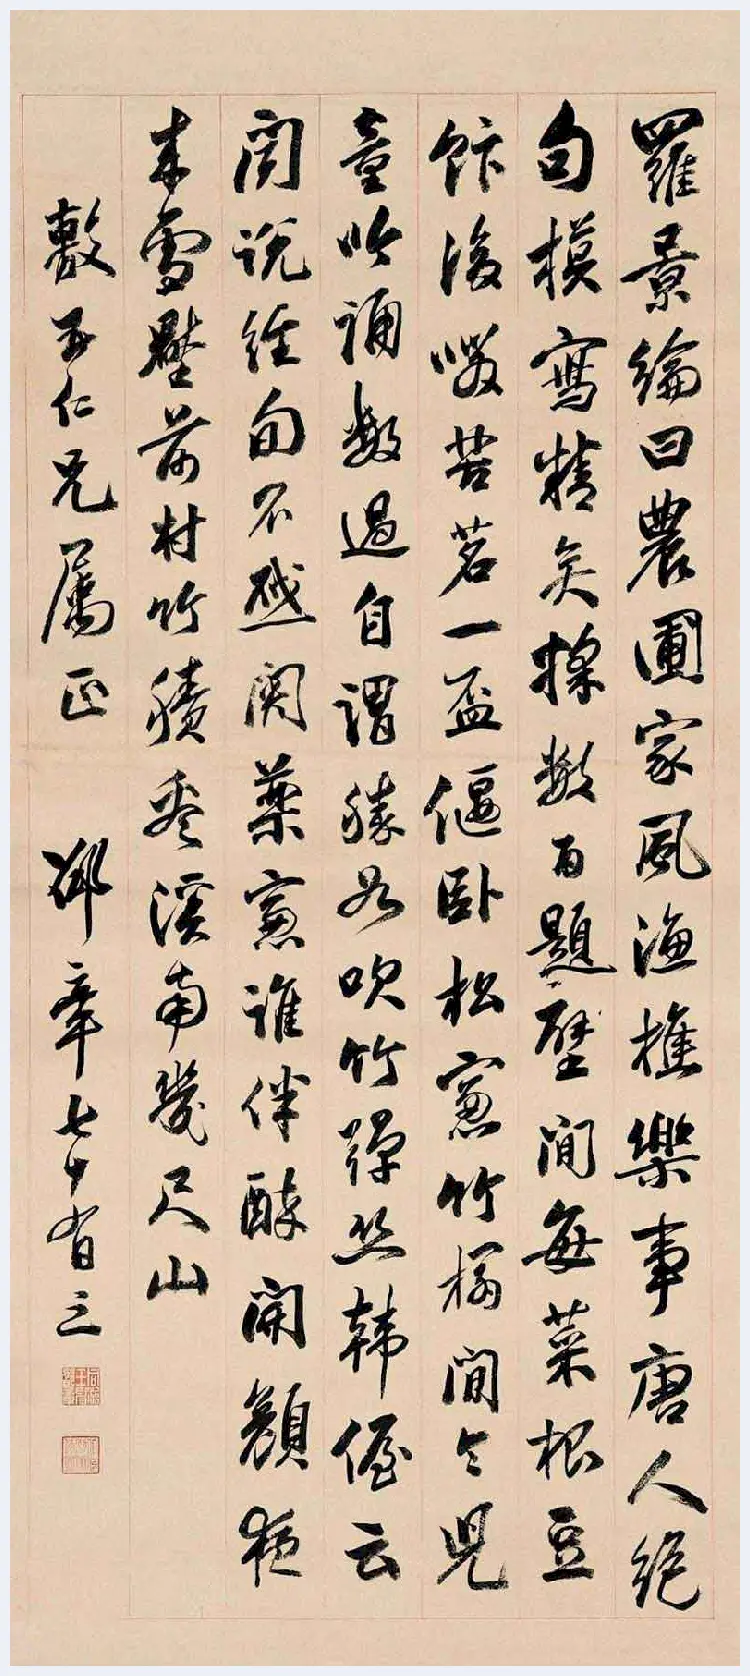 羅景綸曰農圃家風漁樵樂事唐人絕
句模寫精矣採數百題壁間每菜根豆
飰後啜苦茗一盃偃臥松窻竹榻間令兒
童吟誦數過自謂勝如吹竹彈丝韩偓云
聞說經旬不啟關藥窻誰伴醉開顏夜
来雪壓前村竹賸看溪南幾尺山
敷玉仁兄属正 邵章七十有三